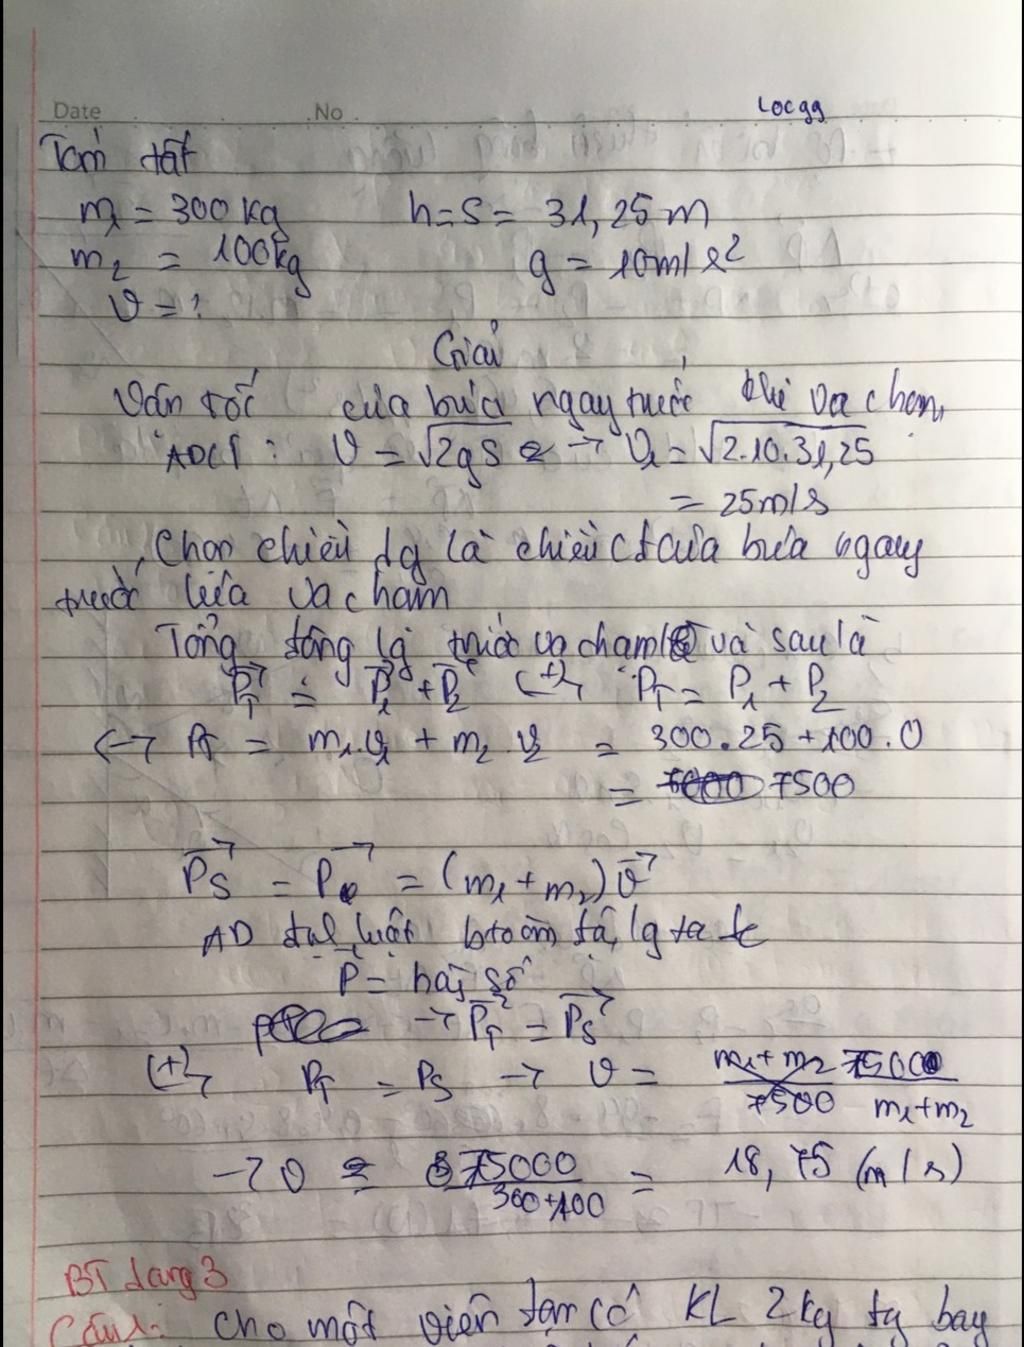 Date No Locgg
Tóm tắt
m₁ = 300kg h=S= 31,25m
m₂ = 100kg g = 10m/s²
v = ?
Giải
Vận tốc của búa ngay trước khi va chạm
ADCT : v = √2gS → v₁ = √2.10.31,25
= 25m/s
Chọn chiều dg là chiều cđ của búa ngay
trước lúc va chạm
Tổng động lg trước va chạm và sau là
P⃗T = P⃗₁ + P⃗₂ (+)→ PT = P₁ + P₂
<-> PT = m₁.v₁ + m₂.v₂ = 300.25 + 100.0
= 7500
P⃗S = P⃗ = (m₁+m₂)v⃗
AD đluật btoàn đg lg ta đc
P⃗ = hằng số
→ P⃗T = P⃗S
(+)→ PT = PS → v = 7500 / m₁+m₂
→ v = 7500 / 300+100 = 18,75 (m/s)
BT dạng 3
Câu1: Cho một viên đạn có KL 2kg đg bay